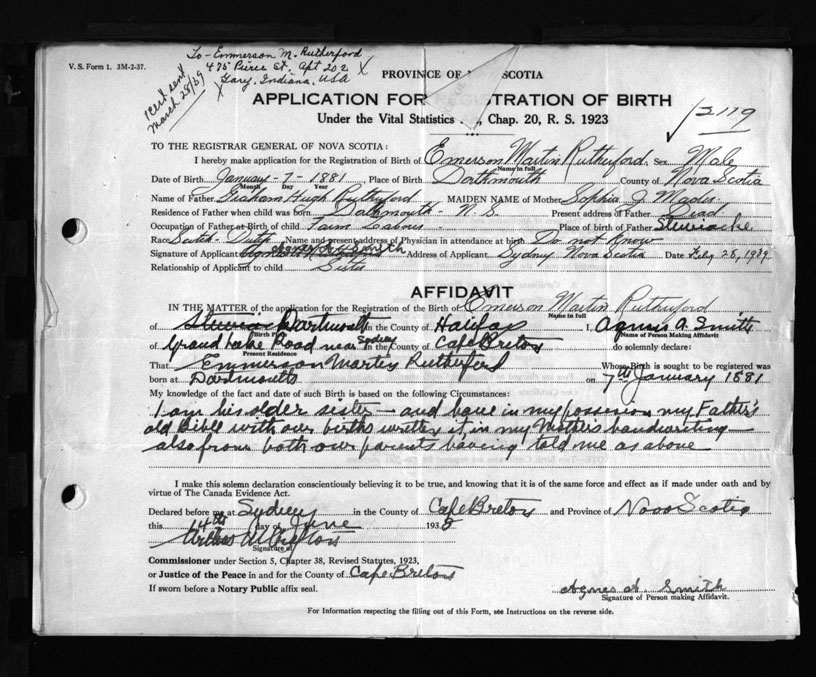 V. S. Form 1. 3M-2-37.
To- Emmerson M. Rutherford
475 Pierce St. Apt 202
Gary, Indiana, USA
Cert sent
March 28/39
PROVINCE OF SCOTIA
APPLICATION FOR REGISTRATION OF BIRTH
Under the Vital Statistics , Chap. 20, R. S. 1923
2119
TO THE REGISTRAR GENERAL OF NOVA SCOTIA:
I hereby make application for the Registration of Birth of Emerson Martin Rutherford, Sex Male
Name in full
Date of Birth January - 7 - 1881 Place of Birth Dartmouth County of Nova Scotia
Month Day Year
Name of Father Graham Hugh Rutherford MAIDEN NAME of Mother Sophia J.
Residence of Father when child was born Dartmouth - N. S. Present address of Father Dead
Occupation of Father at Birth of child Farm Labour Place of birth of Father Stewiacke
Race Scotch - Dutch Name and present address of Physician in attendance at birth Do not Know
Signature of Applicant Agnes A. Smith Address of Applicant Sydney Nova Scotia Date Feby 28, 1939
Relationship of Applicant to child Sister
AFFIDAVIT
IN THE MATTER of the application for the Registration of the Birth of Emerson Martin Rutherford
Name in full
of Dartmouth in the County of Halifax I, Agnes A. Smith
Birth Place Name of Person Making Affidavit
of Grand Lake Road near Sydney in the County of Cape Breton do solemnly declare:
Present Residence
That Emmerson Martin Rutherford Whose Birth is sought to be registered was
born at Dartmouth on 7th January 1881
My knowledge of the fact and date of such Birth is based on the following Circumstances:
I am his older sister - and have in my possession my Father's
old Bible with our births written it, in my Mother's handwriting -
also from both our parents having told me as above
I make this solemn declaration conscientiously believing it to be true, and knowing that it is of the same force and effect as if made under oath and by
virtue of The Canada Evidence Act.
Declared before me at Sydney in the County of Cape Breton and Province of Nova Scotia
this 14th day of June 1938
Signature of
Commissioner under Section 5, Chapter 38, Revised Statutes, 1923,
or Justice of the Peace in and for the County of Cape Breton
If sworn before a Notary Public affix seal.
Agnes A. Smith
Signature of Person making Affidavit.
For Information respecting the filling out of this Form, see Instructions on the reverse side.